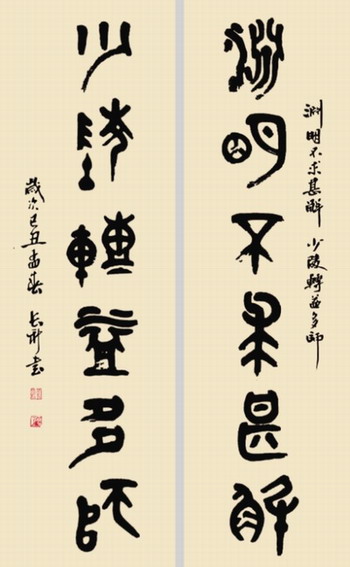 淵明不求甚解 少陵轉益多師
淵明不求甚解
少陵轉益多師
歲次己丑孟春 書